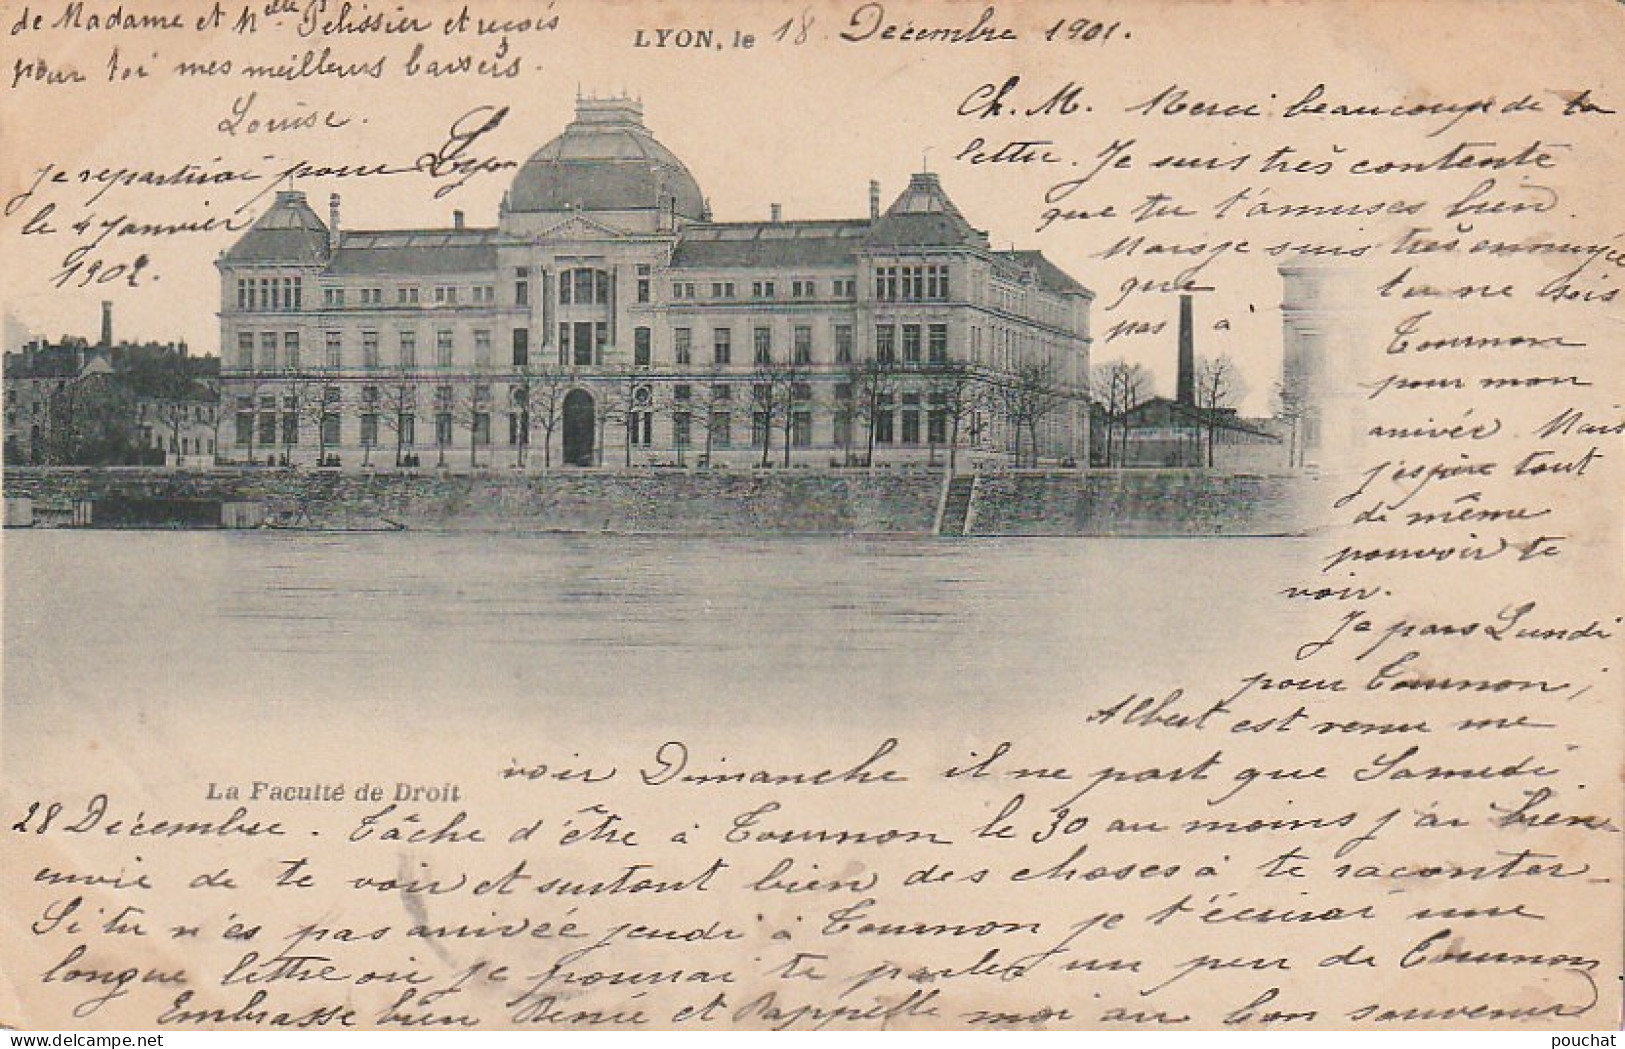 LYON, le 18 Décembre 1901.
Ch. M. Merci beaucoup de ta
lettre. Je suis très contente
que tu t'amuses bien.
Mais je suis très ennuyée
que tu ne sois
pas à Tournon
pour mon
arrivée. Mais
j'espère tout
de même
pouvoir te
voir.
Je pars Lundi
pour Tournon,
Albert est venu me
voir Dimanche il ne part que Samedi
La Faculté de Droit
28 Décembre. Tâche d'être à Tournon le 30 au moins j'ai bien
envie de te voir et surtout bien des choses à te raconter.
Si tu n'es pas arrivée jeudi à Tournon je t'écrirai une
longue lettre où je pourrai te parler un peu de Tournon
Embrasse bien Renée et Rappelle moi au bon souvenir
de Madame et Melle Pelissier et reçois
pour toi mes meilleurs baisers.
Louise.
Je repartirai pour Lyon
le 4 Janvier
1902.
pouchat
delcampe.net